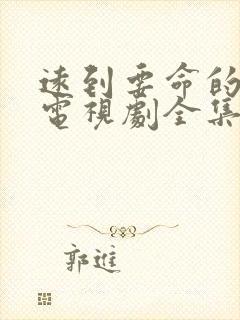 速到要命的
電視劇全集
郭進